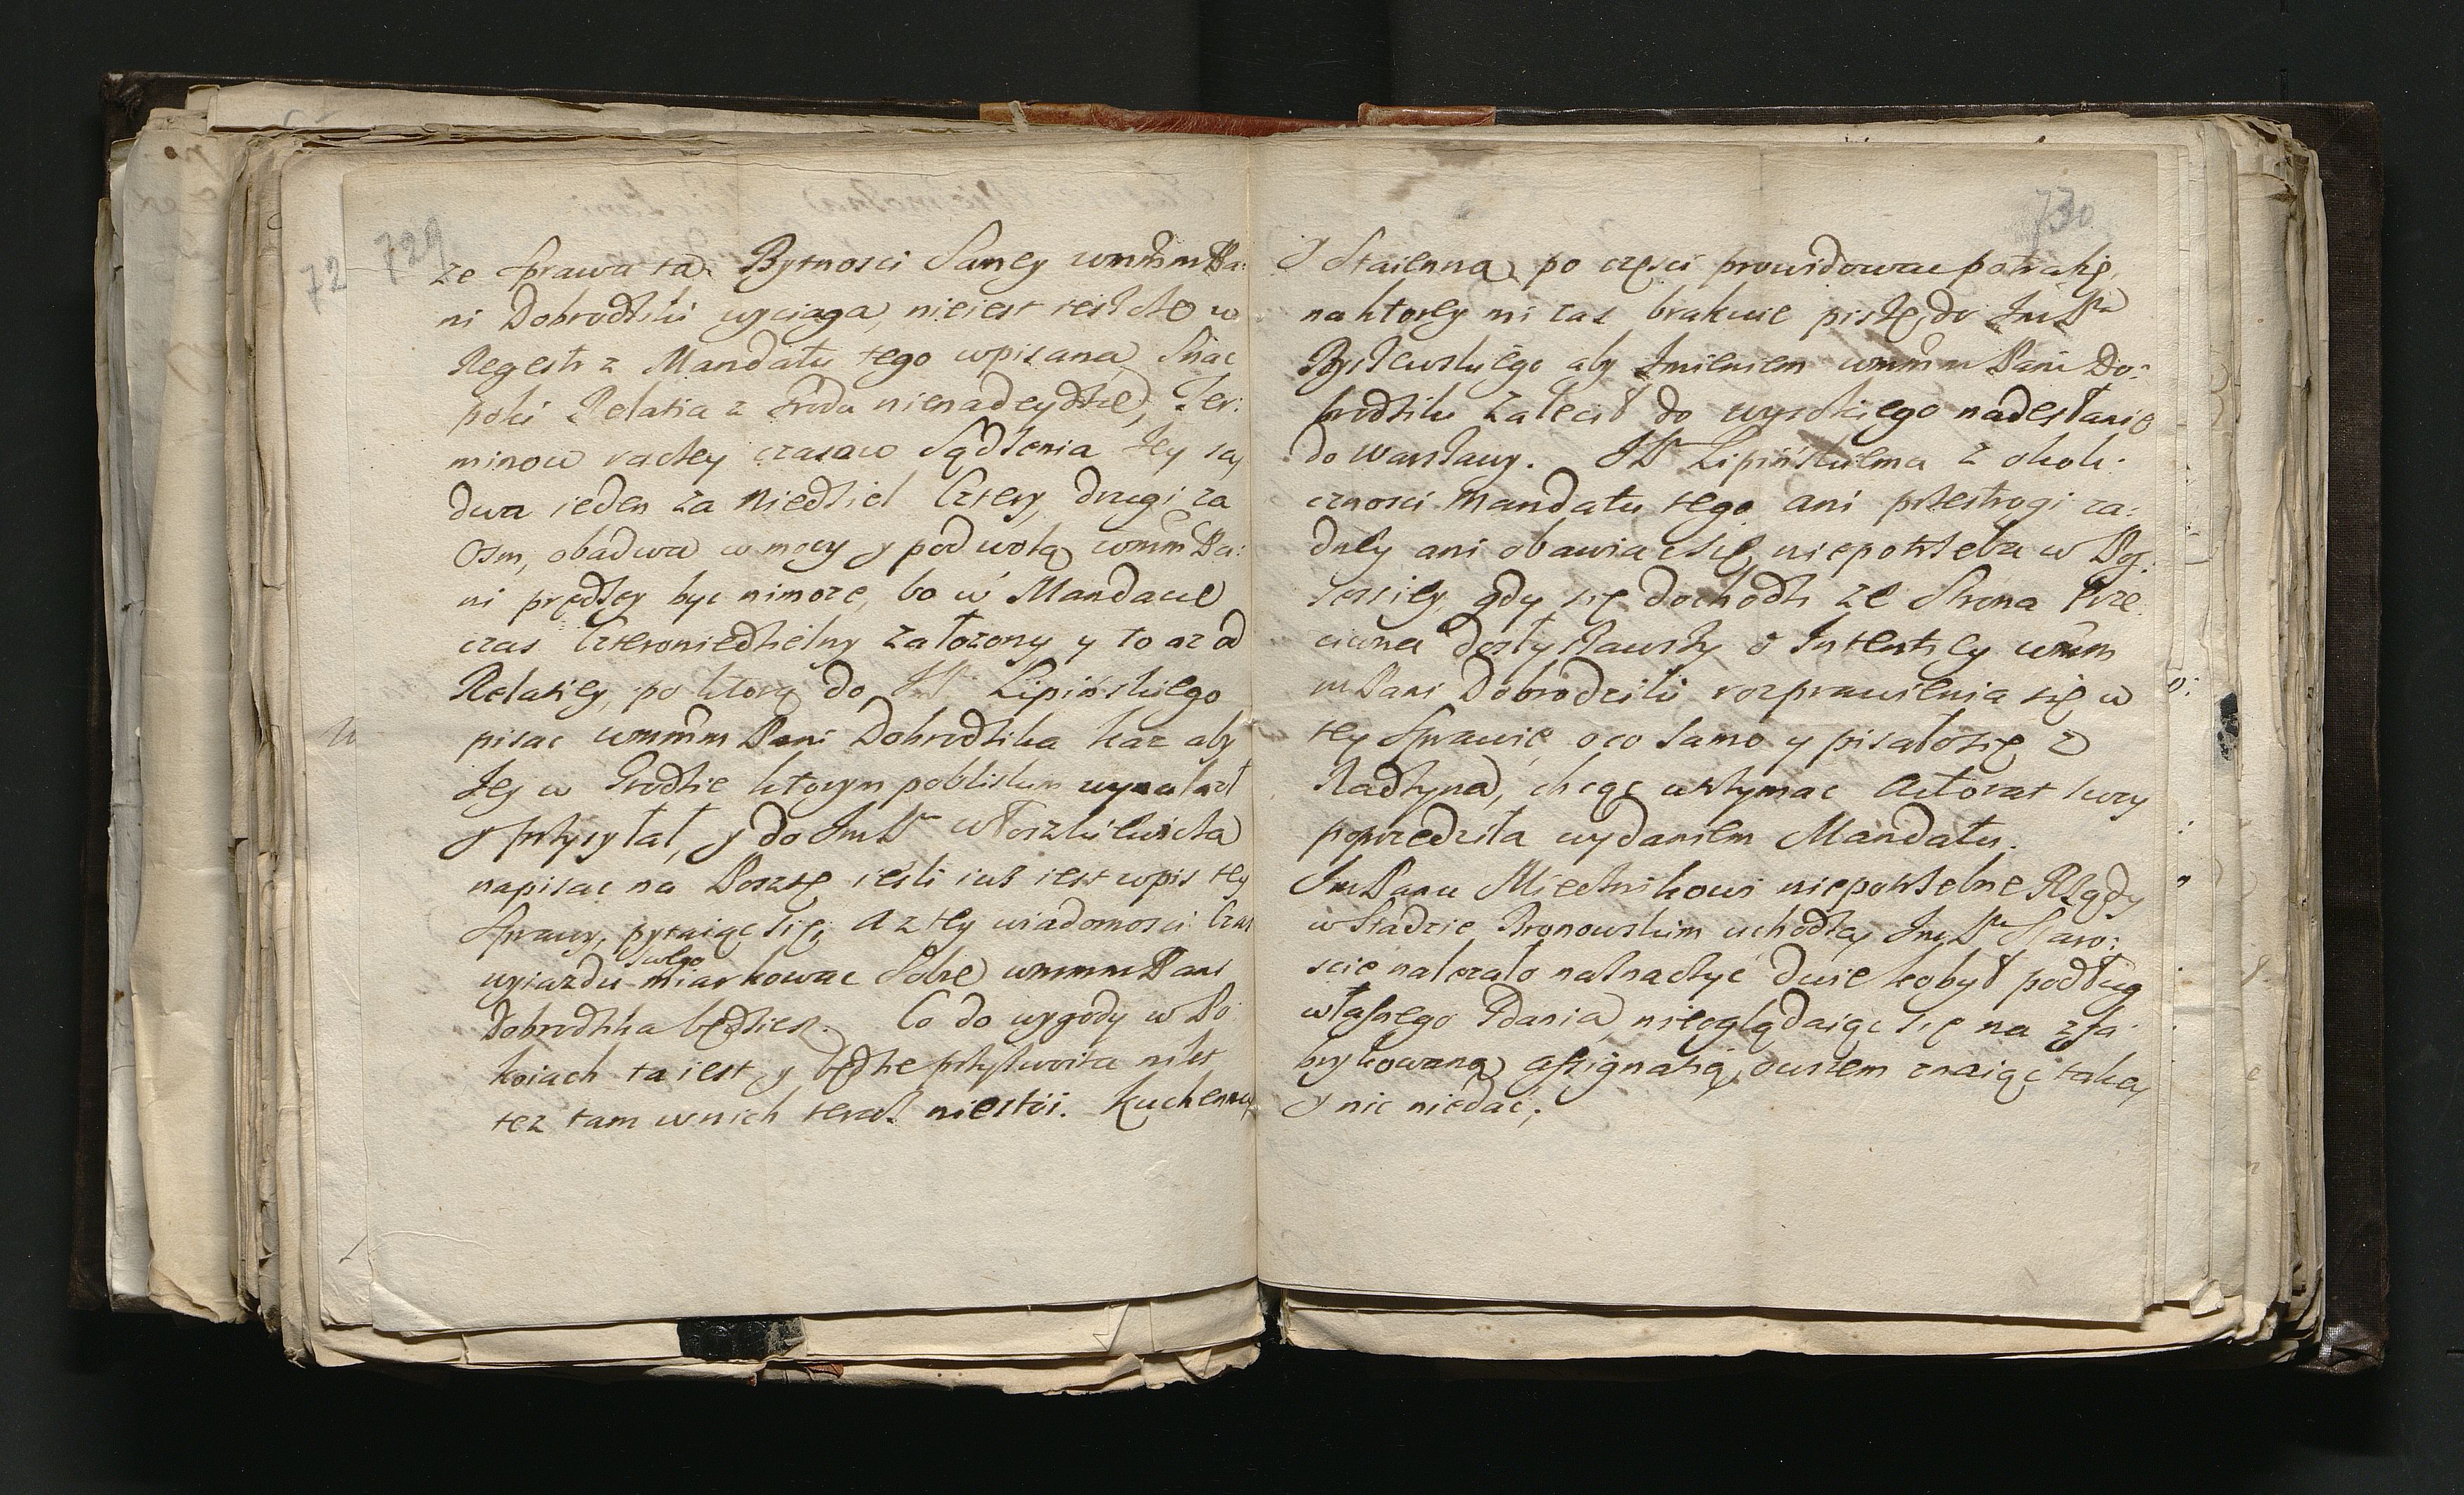 729
72
ze sprawa ta Bytnosci Samey wmmm Pa:
ni Dobrodziki wyciąga, nieiest ieszcze w
Regestr z Mandatu tego wpisana, Snac
poki Relatia z Grodu nienadeydzie, Ter:
minow raczey czasow Sądzenia Jey są
dwa ieden za Niedziel Cztery, drugi za
Osm, obadwa w mocy y pod wolą wmm Pa:
ni prędzey byc nimoze, bo w Mandacie
czas Czteroniedzielny załozony y to az od
Relatiey, po ktorą do JP Lipińskiego
pisac wmmm Pani Dobrodzika kaz aby
Jey w Grodzie ktorym pobliskim wynalazł
y przysyłał, y do Jm Pa Włoszkiewicza
napisac na Posztę ieśli iuz iest wpis tey
Sprawy, pytaiąc się, a z tey wiadomosci Czas
swego
wyiazdu miarkowac Sobie wmmm Pani
Dobrodzika będziesz. Co do wygody w Po
koiach ta iest y będzie przyzwoita nikt
tez tam w nich teraz niestoi. Kuchenną
730
y Staienną po częsci prowidowac potrafię,
na ktorey mi zas brakuie piszę do Jm Pa
Byszewskiego aby Jmieniem wmmm Pani Do:
brodziki zalecił do wysokiego nadesłanie
do Warszawy. JP Lipińskiema z okoli:
cznosci Mandatu tego ani przestrogi za:
dney ani obawiac się niepotrzeba w Pos:
sessiey, gdy się dochodzi ze Strona Prze
ciwna dosłyszawszy o Intentiey wmm
m Pani Dobrodziki rozprawienia się w
tey Sprawie, oco samo y pisało się z
Radzyna, chcąc utrzymac Actorat swoy
poprzedziła wydaniem Mandatu.
Jm Panu Miecznikowi niepotrzebne Rządy
w Stadzie Bronowskim uchodzą, Jm Pa Staro:
scie nalezało naznaczyć dwie kobył podług
własnego Zdania, nieoglądaiąc się na zfa:
brykowaną assignatią, owszem znaiąc taką
y nic niedać;